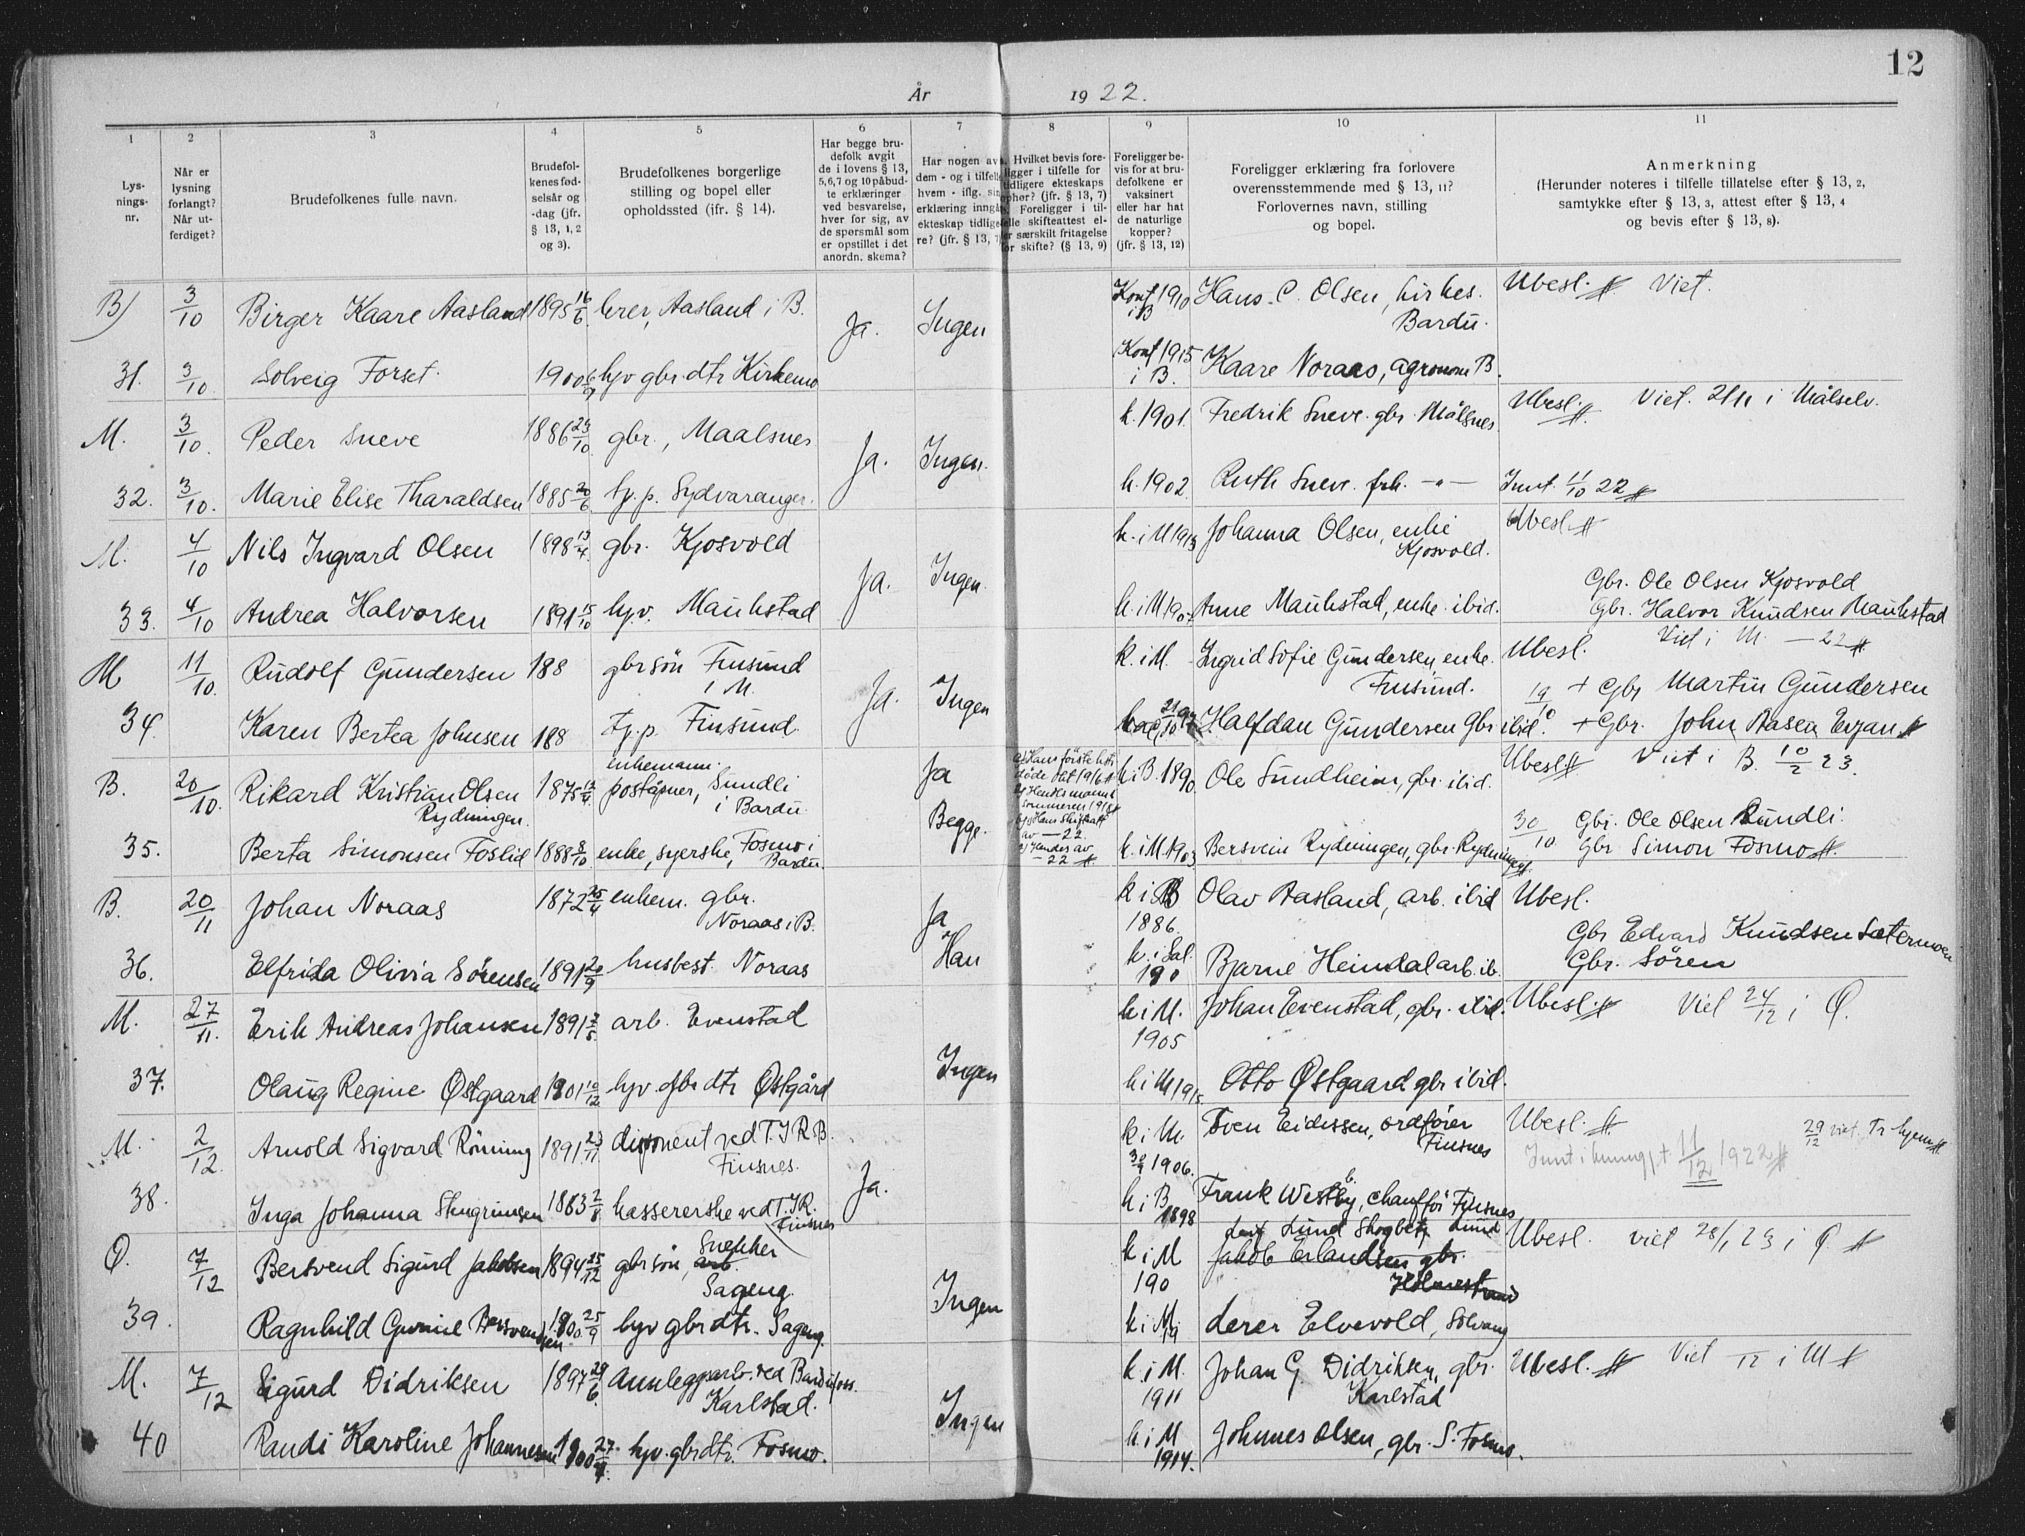 12
År 1922.
1 2 3 4 5 6 7 8 9 10 11
Lys-
nings-
nr.
Når er
lysning
forlangt?
Når ut-
ferdiget?
Brudefolkenes fulle navn.
Brudefol-
kenes fød-
selsår og
-dag (jfr.
§ 13, 1, 2
og 3).
Brudefolkenes borgerlige
stilling og bopel eller
opholdssted (ifr. § 14).
Har begge bru-
defolk avgit
de i lovens § 13,
5,6,7 og 10 påbud-
te erklæringer
ved besvarelse,
hver for sig, av
de spørsmål som
er opstillet i det
anordn. skema?
Har nogen av
dem - og i tilfelle
hvem - iflg. sin
erklæring inngå
ekteskap tidlige-
re? (jfr. § 13,
Hvilket bevis fore-
ligger i tilfelle for
tidligere ekteskaps
ophør? (jfr. § 13, 7)
Foreligger i til-
felle skifteattest el-
ler særskilt fritagelse
for skifte? (§ 13, 9)
Foreligger be-
vis for at bru-
defolkene er
vaksinert
eller har hat
de naturlige
kopper?
(jfr. § 13, 12)
Foreligger erklæring fra forlovere
overensstemmende med § 13, 11?
Forlovernes navn, stilling
og bopel.
Anmerkning
(Herunder noteres i tilfelle tillatelse efter § 13, 2,
samtykke efter § 13, 3, attest efter § 13, 4
og bevis efter § 13, 8).
B) 3/10 Birger Kaare Aasland 1895 16/6 lærer, Aasland i B. Ja. Ingen Konf 1910 i B Hans C. Olsen, kirkes. Bardu. Ubesl. Viet.
31. 3/10 Solveig Forset. 1900 hjv gbr.dtr Kirkemo Konf 1915 i B. Kaare Noraas, agronom B.
M. 3/10. Peder Sneve 1886 29/10 gbr., Maalsnes Ja. Ingen. k. 1901. Fredrik Sneve. gbr Målsnes Ubesl. Viet. 2/11 i Målselv.
32. 3/10. Marie Elise Tharaldsen 1885 20/6 tj.p. Sydvaranger. k. 1902 Ruth Sneve. frk. -"- Innt. 11/10 22
M. 4/10 Nils Ingvard Olsen 1898 13/4 gbr. Kjosvold Ja. Ingen. k. i M 1913 Johanna Olsen, enke Kjosvold. Ubesl.
33. 4/10 Andrea Halvorsen 1891 15/10 hjv. Maukstad k. i M 1907 Anne Maukstad, enke. ibid. Gbr. Ole Olsen Kjosvold
Gbr. Halvor Knudsen Maukstad
Viet i M. — 22
M 11/10. Rudolf Gundersen 188 gbr søn Finsund i M. Ja. Ingen k. i M. Ingrid Sofie Gundersen, enke. Finsund. Ubesl. 19/10 + Gbr Martin Gundersen
34. Karen Bertea Johnsen 188 tj.p. Finsund Halfdan Gundersen Gbr ibid. + Gbr. John Aasen Erjan
B. 20/10. Rikard Kristian Olsen Rydningen. 1875 enkemann. poståpner, Sundli i Bardu. Ja Begge. k i B. 1890 Ole Sundheim, gbr. ibid. Ubesl. Viet i B. 10/2 23.
35. Berta Simonsen Foslid 1888 8/10 enke, syerske, Fosmo i Bardu. k. i M. 1903 Bersvein Rydningen, gbr. Rydningen 30/10 Gbr. Ole Olsen Sundli.
Gbr Simon Fosmo.
B. 20/11 Johan Noraas 1872 25/4 enkem. gbr. Noraas i B. Ja Han k i B 1886. Olav Aasland, arb. ibid Ubesl.
36. Elfrida Olivia Sørensen 1891 20/9 husbest. Noraas k. i Sal. 190 Bjarne Heimdal arb. ib. Gbr Edvard Knudsen Sætermoen
Gbr. Søren
M. 27/11. Erik Andreas Johansen 1891 2/5 arb. Evenstad Ingen k i M. 1905 Johan Evenstad, gbr. ibid. Ubesl. Viet 24/12 i Ø.
37. Olaug Regine Østgaard 1901 10/12 hjv. gbr dtr Østgård k i M 1915. Otto Østgaard gbr ibid.
M. 2/12. Arnold Sigvard Rönning 1891 23/11 disponent ved T.I.R.B. Finsnes. Ja. k i M. 30/9 1906. Sven Eidissen, ordfører Finsnes Ubesl. 11/12 1922 29/12 viet. Tr hjem
38. Inga Johanna Stengrimsen 1883 2/8 kassererske ved T.I.R. Finsnes k i B 1898 Frank Westby, chauffør Finsnes
Ø. 7/12 Bersvend Sigurd Jakobsen 1894 25/12 gbr søn, snekker arb. Sageng. Ingen k i M 190 Leif Lund Skogbest. Lund
Jakob Erlandsen gbr. Holmestrand Ubesl. viet 28/1 23 i Ø.
39. Ragnhild Gunnie Bersvendsen 1900 25/9 hjv gbr dtr. Sageng. k i M 19 lærer Elvevold, Solvang
M. 7/12 Sigurd Didriksen 1897 29/6 Annleggsarb. ved Bardufoss. Karlstad. Ingen k. i M. 1911 Johan G. Didriksen, gbr. Karlstad Ubesl. Viet /12 i M
40 Randi Karoline Johannesen 1900 hjv. gbr dtr. Fosmo. k i M 1914. Johnnes Olsen, gbr. S. Fosmo.